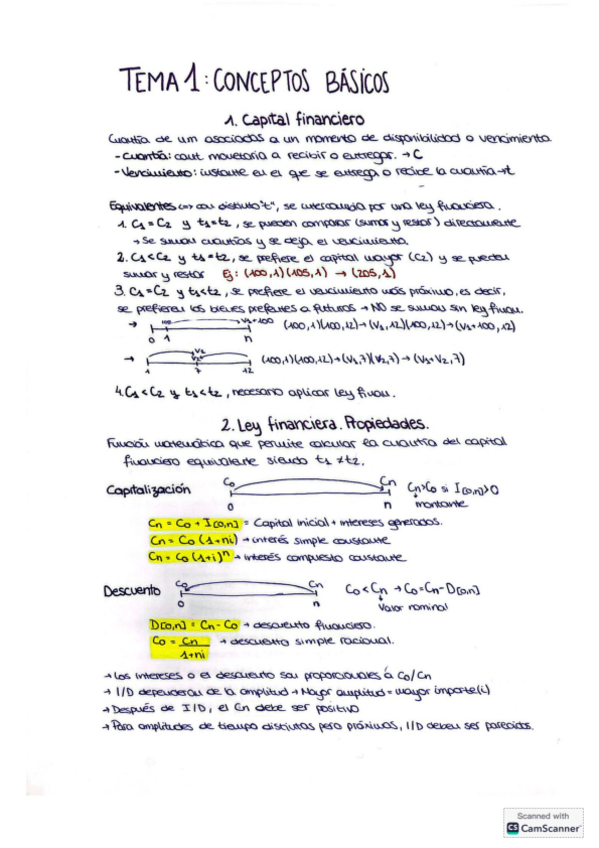 TEMA 1: CONCEPTOS BÁSICOS
1. Capital financiero
Cuantía de um asociadas a un momento de disponibilidad o vencimiento
- Cuantía: cant. monetaria a recibir o entregar. → C
- Vencimiento: instante en el que se entrega o recibe la cuantía → t
Equivalentes (=) con distinto "t", se intercambia por una ley financiera.
1. C1 = C2 y t1 = t2, se pueden comparar (sumar y restar) directamente
→ Se suman cuantías y se deja el vencimiento.
2. C1 < C2 y t1 = t2, se prefiere el capital mayor (C2) y se pueden
sumar y restar Ej: (100,1)(105,1) → (205,1)
3. C1 = C2 y t1 < t2, se prefiere el vencimiento más próximo, es decir,
se prefieren los bienes presentes a futuros → NO se suman sin ley finan.
→ 100 V1+100 (100,1)(100,12)→(V1,12)(100,12)→(V1+100,12)
0 1 n
→ V2 V2 (100,1)(100,12)→(V1,7)(V2,7)→(V1+V2,7)
1 7 12
4. C1 < C2 y t1 < t2, necesario aplicar ley finan.
2. Ley financiera. Propiedades.
Función matemática que permite calcular la cuantía del capital
financiero equivalente siendo t1 ≠ t2.
Capitalización Co Cn Cn>Co si I[0,n]>0
0 n montante
Cn = Co + I[0,n] = Capital inicial + intereses generados.
Cn = Co (1+ni) → interés simple constante
Cn = Co (1+i)^n → interés compuesto constante
Descuento Co Cn Co < Cn → Co = Cn - D[0,n]
0 n Valor nominal
D[0,n] = Cn - Co → descuento financiero.
Co = Cn → descuento simple racional.
1+ni
→ Los intereses o el descuento son proporcionales a Co/Cn
→ I/D dependerán de la amplitud → Mayor amplitud = mayor importe (i)
→ Después de I/D, el Cn debe ser positivo
→ Para amplitudes de tiempo distintas pero próximas, I/D deben ser parecidos.
Scanned with
CS CamScanner